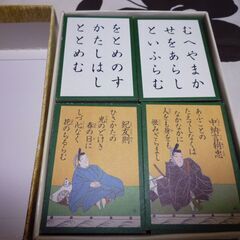 むへやまか
せをあらし
といふらむ
をとめのす
かたしはし
ととめむ
中納言朝忠
あふことの
たえてしなくは
なかなかに
人をも身をも
恨みざらまし
紀友則
ひさかたの
光のどけき
春の日に
しづ心なく
花のちるらむ